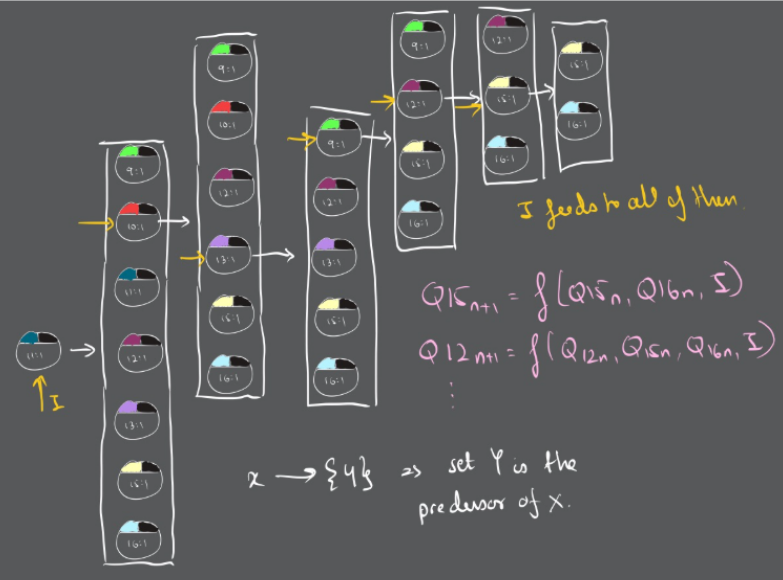 11:1
I
9:1
10:1
11:1
12:1
13:1
15:1
16:1
9:1
10:1
12:1
13:1
15:1
16:1
9:1
12:1
13:1
15:1
16:1
9:1
12:1
15:1
16:1
12:1
15:1
16:1
15:1
16:1
I feeds to all of them.
Q15n+1 = f(Q15n, Q16n, I)
Q12n+1 = f(Q12n, Q15n, Q16n, I)
⋮
x → {Y} => set Y is the
predussor of X.